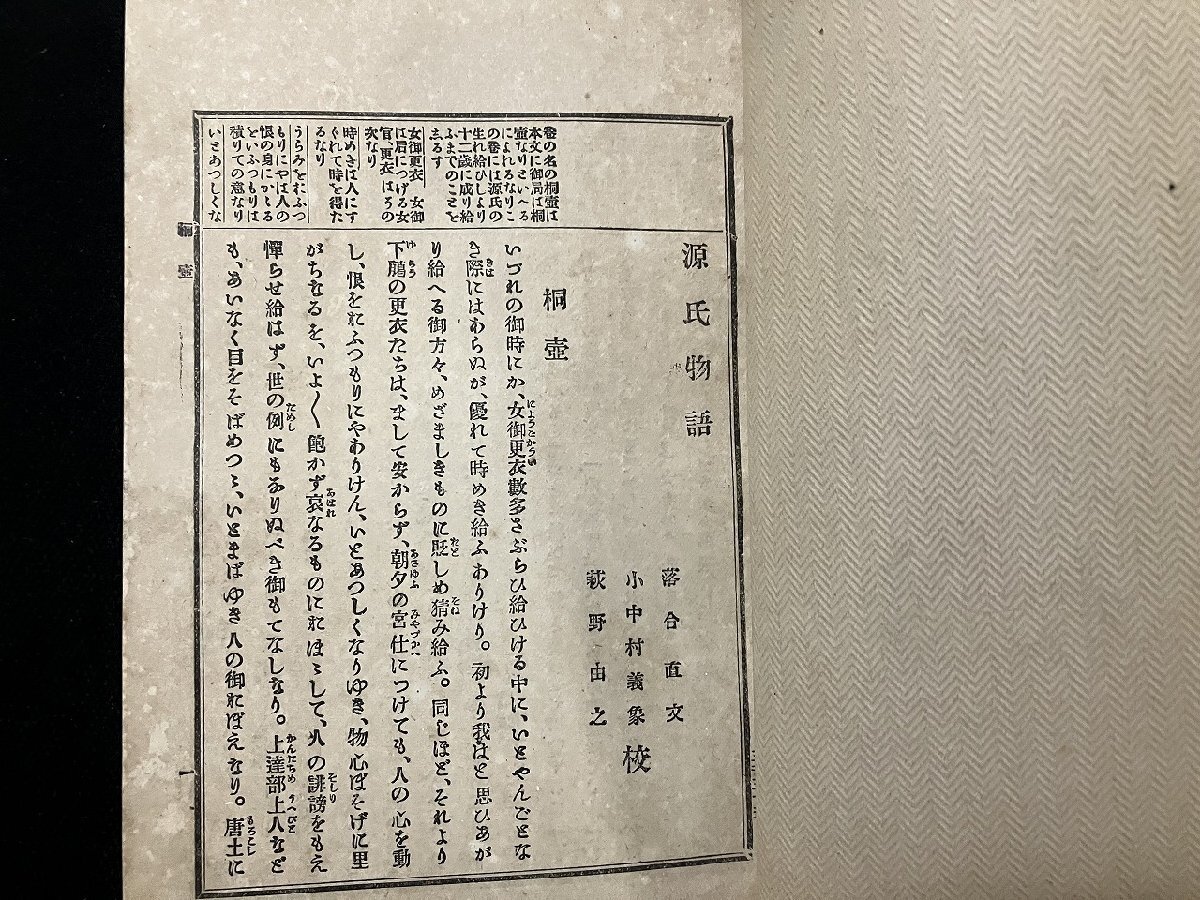 源氏物語
落合直文
小中村義象 校
萩野由之
桐壺
いづれの御時にか、女御更衣數多さぶらひ給ひける中に、いとやんごとな
き際にはあらぬが、優れて時めき給ふありけり。初より我はと思ひあが
り給へる御方々、めざましきものに貶しめ猜み給ふ。同じほど、それより
下﨟の更衣たちは、まして安からず、朝夕の宮仕につけても、人の心を動
し、恨をおふつもりにやありけん、いとあつしくなりゆき、物心ぼそげに里
がちなるを、いよ〱飽かず哀なるものにおほゝして、人の誹謗をもえ
憚らせ給はず、世の例にもなりぬべき御もてなしなり。上達部上人など
も、あいなく目をそばめつゝ、いとまばゆき人の御おぼえなり。唐土に
卷の名の桐壺は
本文に御局は桐
壺なりといへる
によれるなりこ
の卷には源氏の
生れ給ひしより
十二歳に成り給
ふまでのことを
しるす
女御更衣 女御
は局につげる女
官、更衣はその
次なり
時めきは人にす
ぐれて時を得た
るなり
うらみをおふつ
もりにやは人の
恨の身にかゝる
といふつもりは
積りての意なり
いとあつしくな
桐壺
一